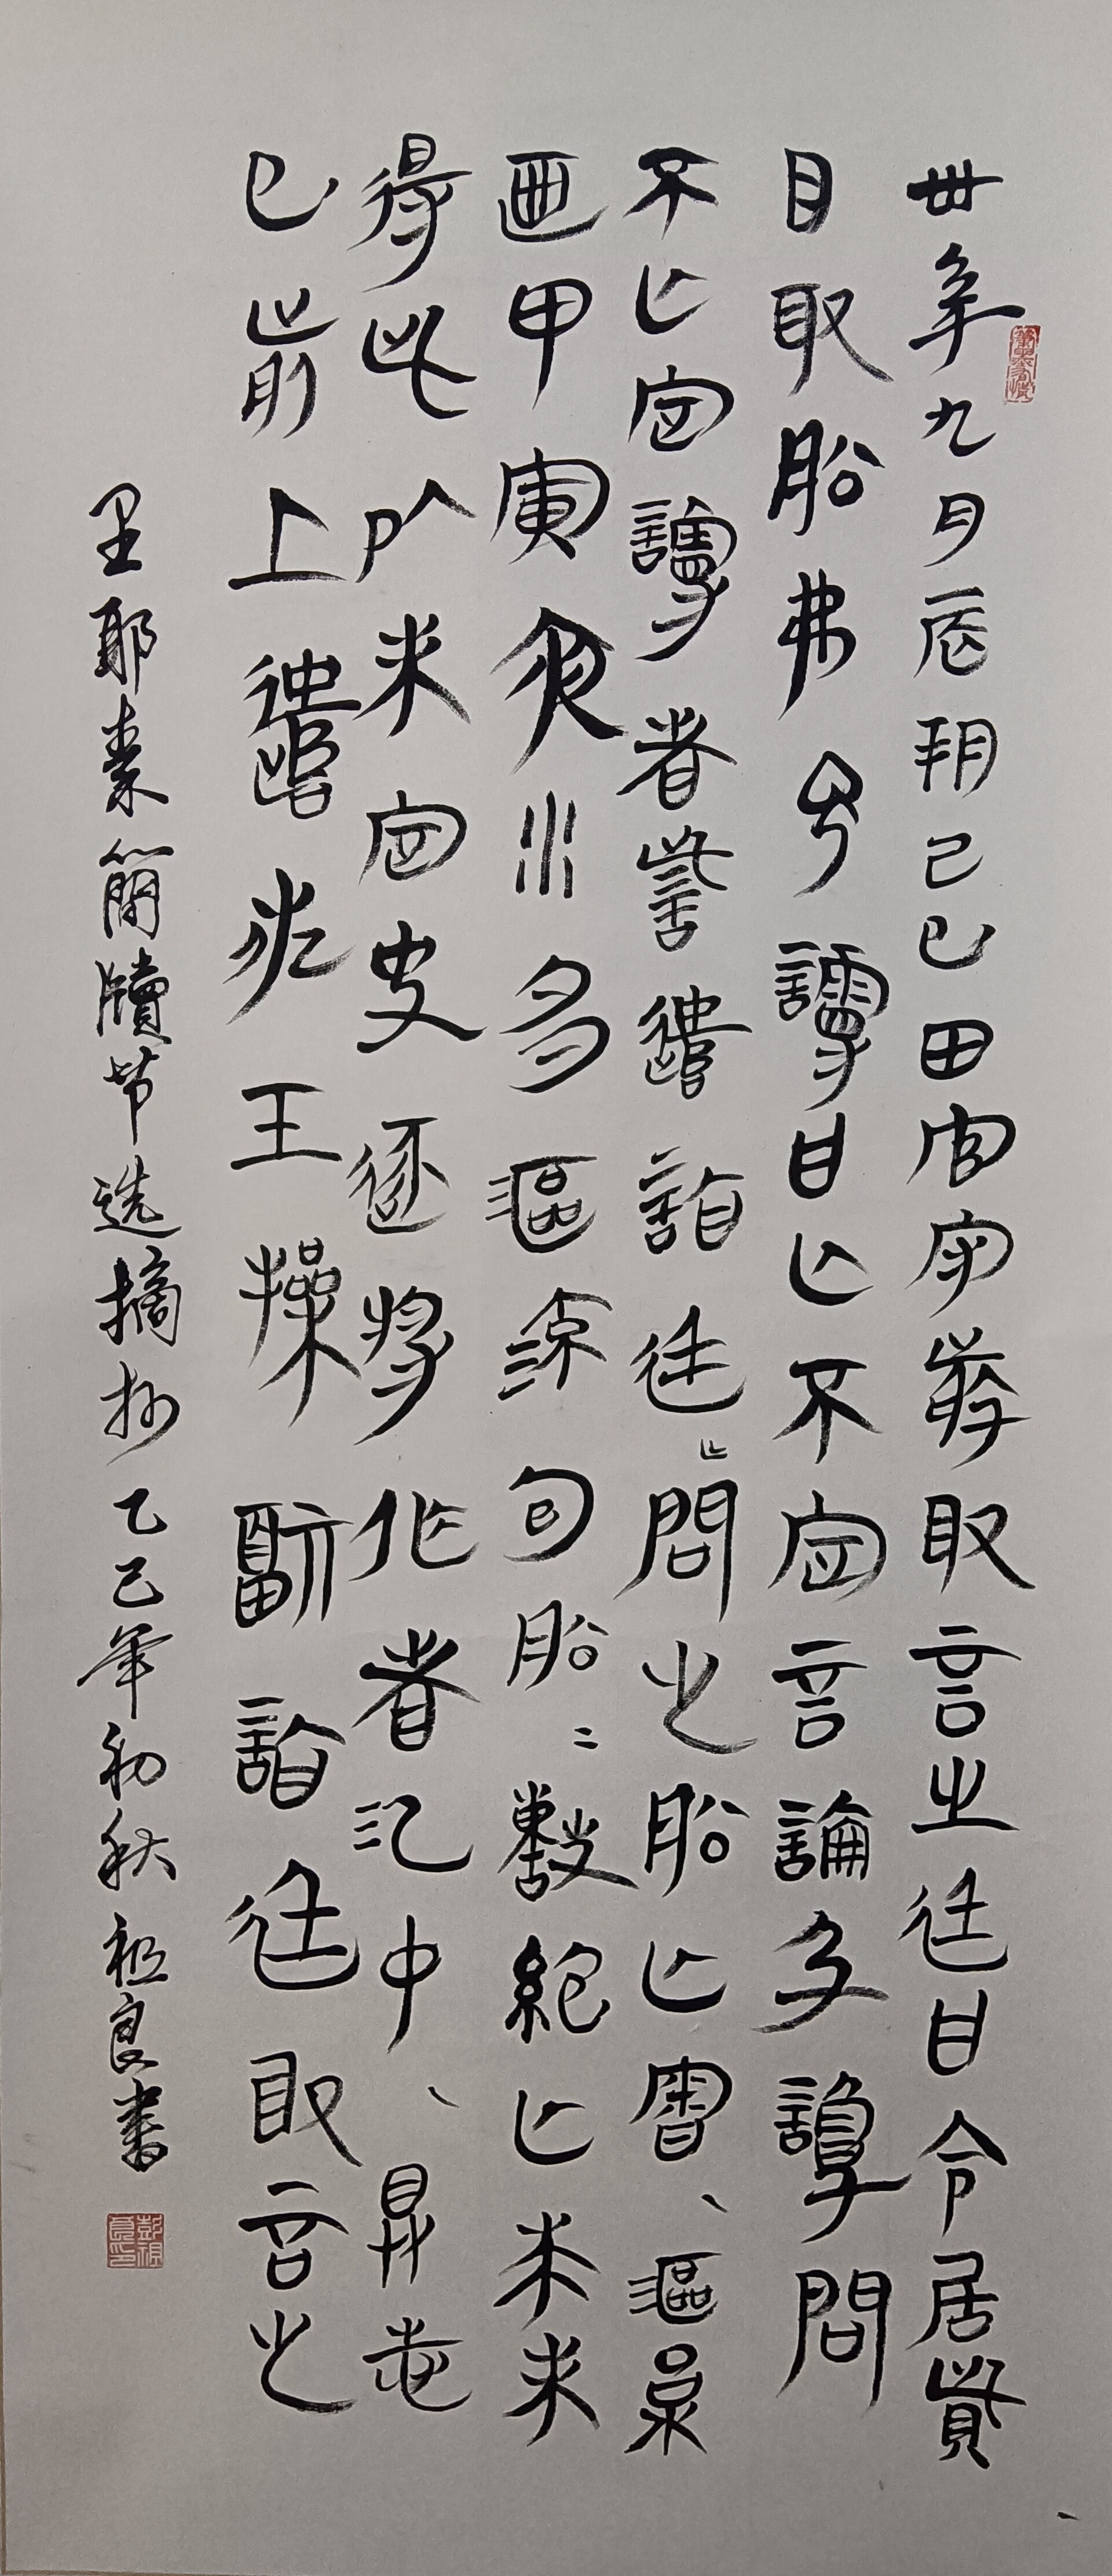 卅年九月庚辰朔己巳田官守敬敢言之廷曰令居貲
目取船弗予謾曰亡不定言論及讂問
不亡定謾者訾遣詣廷廷問之船亡審漚枲
迺甲寅夜水多漚流包船船繫絕亡未求
得此以未定史逐將作者汜中具志
已前上遣佐壬操副詣廷敢言之
里耶秦簡牘节选摘抄乙巳年初秋祖良書